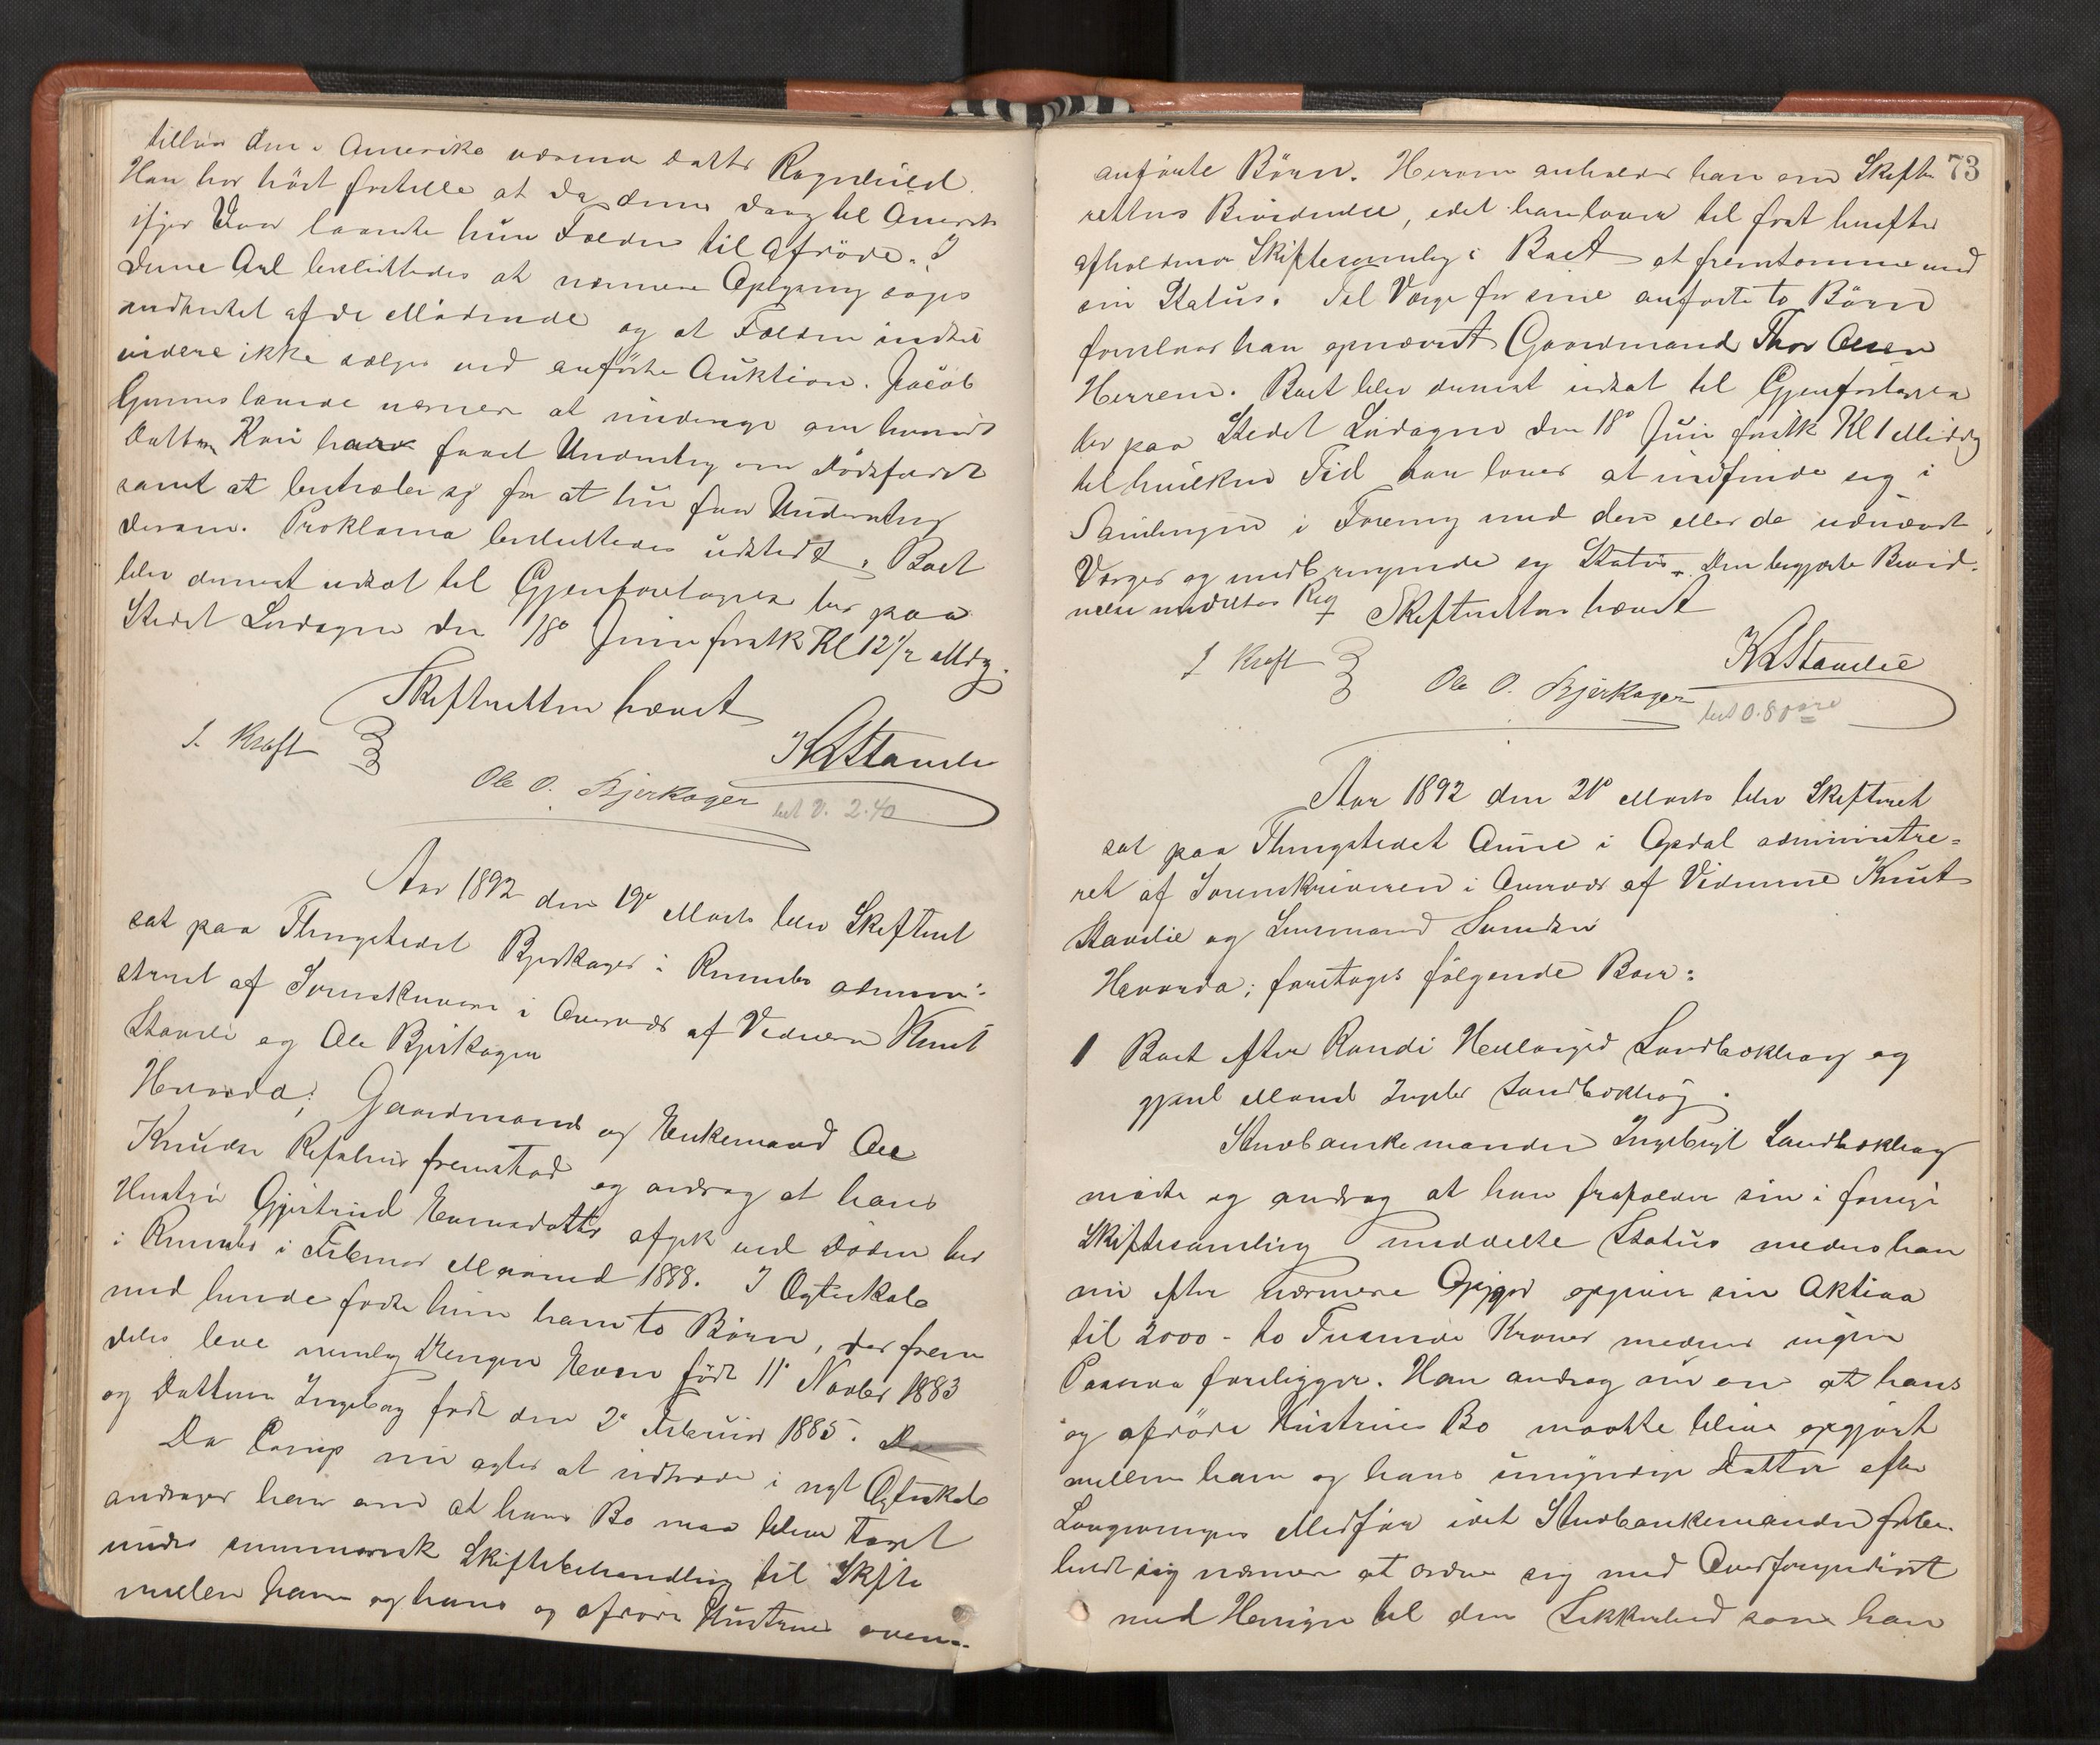 tilhør den i Amerika værende datter Ragnhild.
Han har hørt fortelle at da denne drog til Amerik
ifjor Vaar laante hun Folden til Afdøde. I
denne Anl besluttedes at nærmere Oplysning søges
indhentet af de Mødende og at Folden indtil
videre ikke sælges ved anførte Auktion. Jacob
Gunneslaunde nævner at underrge om hvorvidt
datteren Kari har faaet Underretng om Dødsfaldet
samt at bestræbe sig for at hun faar Underretng
derom. Proklama besluttedes udstedt. Boet
blev dernæst udsat til Gjenforetagelse her paa
Stedet Lørdagen den 18de Juni førstk Kl 12 1/2 Mdg.
Skifteretten hævet
J. Kraft
K Stavlie
Ole O. Bjerkager
bet V. 2.40
Aar 1892 den 19de Marts blev Skifteret
sat paa Thingstedet Bjerkager i Rennebo admini-
streret af Sorenskriveren i Overvær af Vidnerne Knut
Stavli og Ole Bjerkager
Hvorda: Gaardmand og Enkemand Ole
Knudsen Refshus fremstod og androg at hans
Hustru Gjertrud Evensdatter afgik ved Døden her
i Rennebo i Februar Maaned 1888. I Ægteskab
med hende fødte hun ham to Børn, der frem
deles leve nemlig Drengen Even født 11te Novbr 1883
og Datteren Ingeborg født den 2de Februar 1885. Da
Da Comp nu agter at indtræde i nyt Ægteskab
andrager han om at hans Bo maa blive taget
under summarisk Skiftebehandling til Skifte
mellem ham og hans og afdøde Hustrues oven-
73
anførte Børn. Herom anholder han om Skifte
rettens Bevidnelse, idet han lover til først herefter
afholdende Skiftesamling i Boet at fremkomme med
sin Status. Til Værge for sine anførte to Børn
foreslaar han opnævnt Gaardmand Thor Olsen
Herrem. Boet blev dernæst udsat til Gjenforetagelse
her paa Stedet Lørdagen den 18de Juni førstk Kl 1 Middg
til hvilken Tid han lover at indfinde sig i
Samlingen i Forening med den eller de udnævnt
Værger og medbringende sy Status. Den begjærte Bevid-
nelse meddeltes Req Skifteretten hævet
J Kraft
K Stavlie
Ole O. Bjerkager
bet 0.80 øre
Aar 1892 den 21de Marts blev Skifteret
sat paa Thingstedet Aune i Opdal administre-
ret af Sorenskriveren i Overvær af Vidnerne Knut
Stavlie og Lensmand Sunden
Hvorda: foretoges følgende Boer:
1 Boet efter Randi Haldorsd Sandbækhaug og
gjenl Mand Ingebr Sandbækhøg.
Stervboenkemanden Ingebrigt Sandbækhaug
mødte og androg at han frafalder sin i forrige
Skiftesamling meddelte Status medens han
nu efter nærmere Opgjør opgiver sin Aktiva
til 2000 - to Tusinde Kroner medens ingen
Passiva foreligger. Han androg nu om at hans
og afdøde Hustrues Bo maatte blive opgjort
mellem ham og hans umyndige Datter efter
Lovgivningens Medfør idet Stervboenkemanden forbe-
holdt sig nærmere at ordne sig med Overformynderiet
med Hensyn til den Sikkerhed som han